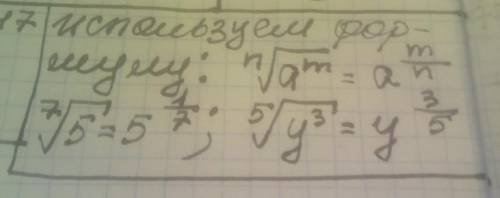 17 используем фор-
мулу: ⁿ√aᵐ = a^(m/n)
⁷√5 = 5^(1/7); ⁵√y³ = y^(3/5)